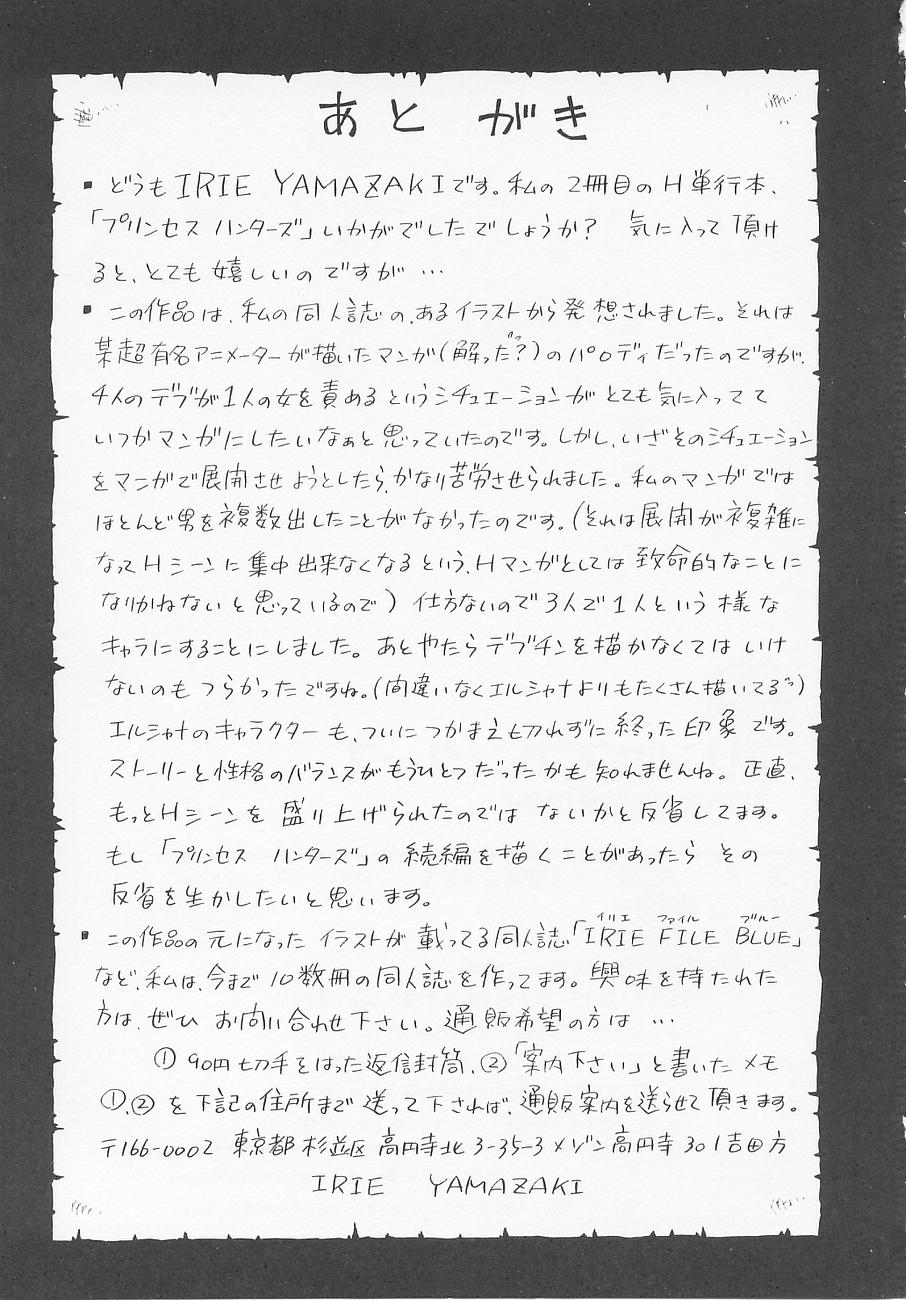 あとがき
▪ どうもIRIE YAMAZAKIです。私の2冊目のH単行本、
「プリンセスハンターズ」いかがでしたでしょうか? 気に入って頂け
ると、とても嬉しいのですが…
▪ この作品は、私の同人誌の、あるイラストから発想されました。それは
某超有名アニメーターが描いたマンガ(解った?)のパロディだったのですが、
4人のデブが1人の女を責めるというシチュエーションがとても気に入ってて
いつかマンガにしたいなぁと思っていたのです。しかし、いざそのシチュエーション
をマンガで展開させようとしたら、かなり苦労させられました。私のマンガでは
ほとんど男を複数出したことがなかったのです。(それは展開が複雑に
なってHシーンに集中出来なくなるという、Hマンガとしては致命的なことに
なりかねないと思っているので) 仕方ないので3人で1人という様な
キャラにすることにしました。あとやたらデブチンを描かなくてはいけ
ないのもつらかったですね。(間違いなくエルシャナよりもたくさん描いてる)
エルシャナのキャラクターも、ついにつかまえ切れずに終った印象です。
ストーリーと性格のバランスがもうひとつだったかも知れませんね。正直、
もっとHシーンを盛り上げられたのではないかと反省してます。
もし「プリンセス ハンターズ」の続編を描くことがあったら その
反省を生かしたいと思います。
イリエ ファイル ブルー
▪ この作品の元になったイラストが載ってる同人誌「IRIE FILE BLUE」
など、私は、今まで10数冊の同人誌を作ってます。興味を持たれた
方は、ぜひ お問い合わせ下さい。通販希望の方は …
① 90円切手をはった返信封筒、②「案内下さい」と書いたメモ
①、②を下記の住所まで送って下されば、通販案内を送らせて頂きます。
〒166-0002 東京都杉並区高円寺北3-35-3メゾン高円寺301吉田方
IRIE YAMAZAKI